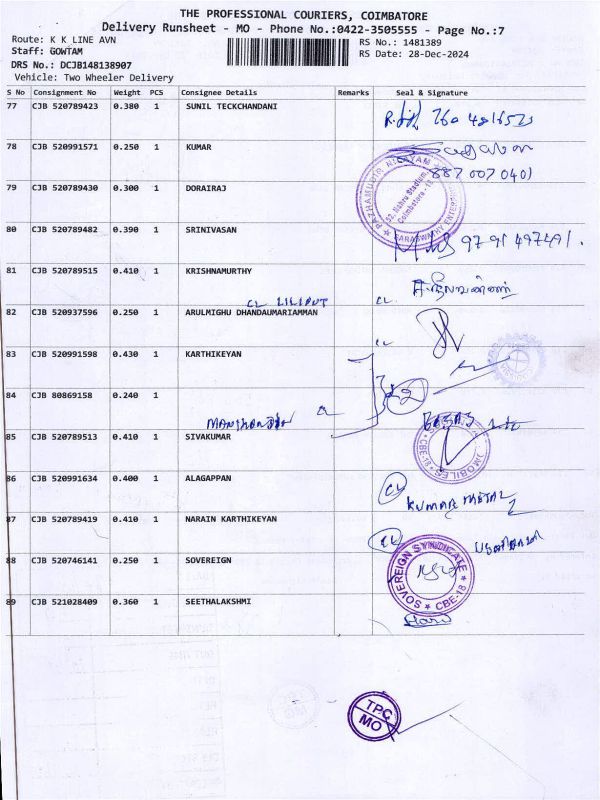 THE PROFESSIONAL COURIERS, COIMBATORE
Delivery Runsheet - MO - Phone No.:0422-3505555 - Page No.:7
Route: K K LINE AVN
RS No.: 1481389
Staff: GOWTAM
RS Date: 28-Dec-2024
DRS No.: DCJB148138907
Vehicle: Two Wheeler Delivery
S No Consignment No Weight PCS Consignee Details Remarks Seal & Signature
77 CJB 520789423 0.380 1 SUNIL TECKCHANDANI
78 CJB 520991571 0.250 1 KUMAR
887 007 0401
79 CJB 520789430 0.300 1 DORAIRAJ
PAZHAMUDIR NILAYAM
52, Nehru Stadium,
Coimbatore - 18.
80 CJB 520789482 0.390 1 SRINIVASAN
9791497491.
81 CJB 520789515 0.410 1 KRISHNAMURTHY
CL LILIPUT CL
82 CJB 520937596 0.250 1 ARULMIGHU DHANDAUMARIAMMAN
83 CJB 520991598 0.430 1 KARTHIKEYAN
84 CJB 80869158 0.240 1
85 CJB 520789513 0.410 1 SIVAKUMAR
MOBILES
CBE-18
86 CJB 520991634 0.400 1 ALAGAPPAN
CL
KUMAR METAL
87 CJB 520789419 0.410 1 NARAIN KARTHIKEYAN
CL
88 CJB 520746141 0.250 1 SOVEREIGN
SOVEREIGN SYNDICATE
CBE-18
89 CJB 521028409 0.360 1 SEETHALAKSHMI
TPC
MO